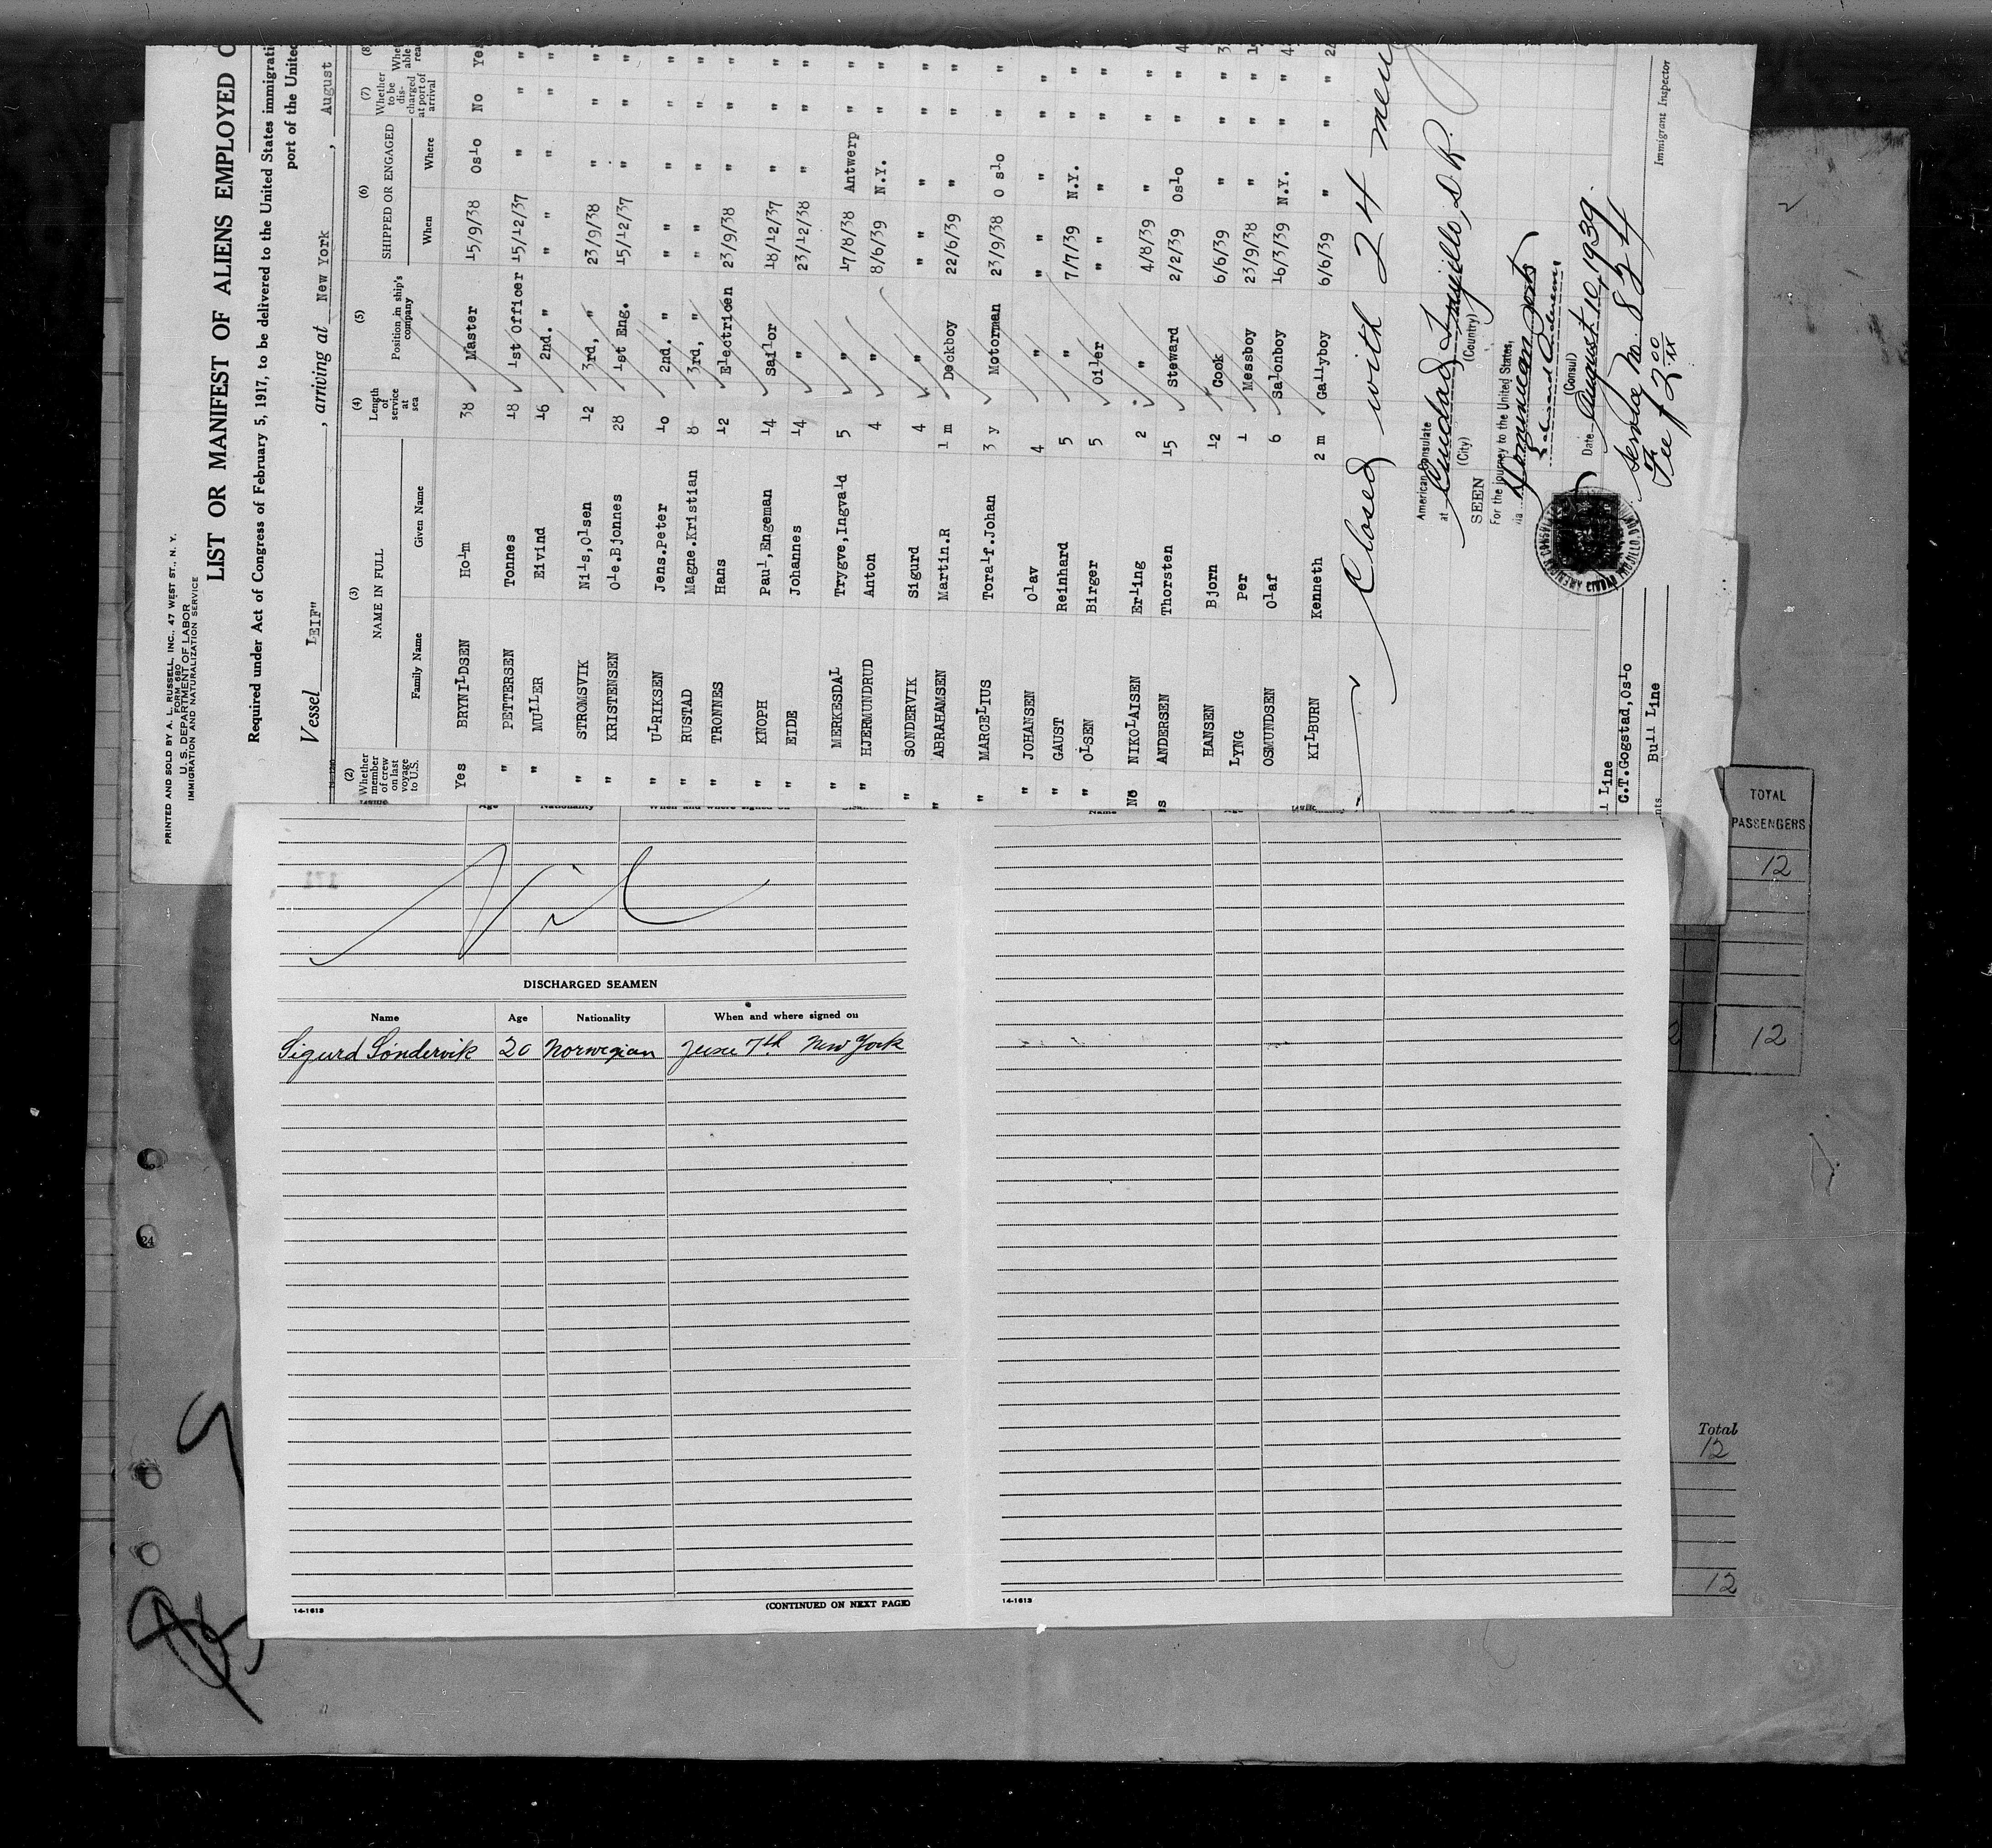 PRINTED AND SOLD BY A. L. RUSSELL, INC., 47 WEST ST., N. Y.
FORM 680
U. S. DEPARTMENT OF LABOR
IMMIGRATION AND NATURALIZATION SERVICE
LIST OR MANIFEST OF ALIENS EMPLOYED O
Required under Act of Congress of February 5, 1917, to be delivered to the United States immigrati
port of the United
Vessel LEIF" , arriving at New York , August
(2) Whether member of crew on last voyage to U.S. (3) NAME IN FULL Family Name Given Name (4) Length of service at sea (5) Position in ship's company (6) SHIPPED OR ENGAGED When Where (7) Whether to be discharged at port of arrival (8)
Yes BRYNILDSEN Holm 38 Master 15/9/38 Oslo No Yes
" PETTERSEN Tonnes 18 1st Officer 15/12/37 " " "
" MULLER Eivind 16 2nd. " " " " "
" STROMSVIK Nils,Olsen 12 3rd, " 23/9/38 " " "
" KRISTENSEN Ole.Bjonnes 28 1st Eng. 15/12/37 " " "
" ULRIKSEN Jens.Peter 10 2nd. " " " " " "
" RUSTAD Magne.Kristian 8 3rd, " " " " " "
" TRONNES Hans 12 Electricen 23/9/38 " " "
" KNOPH Paul,Engeman 14 Sailor 18/12/37 " " "
" EIDE Johannes 14 " 23/12/38 " " "
" MERKESDAL Trygve,Ingvald 5 " 17/8/38 Antwerp " "
" HJERMUNDRUD Anton 4 " 8/6/39 N.Y. " "
" SONDERVIK Sigurd 4 " " " " " "
" ABRAHAMSEN Martin.R 1 m Deckboy 22/6/39 " " "
" MARCELIUS Toralf.Johan 3 y Motorman 23/9/38 O slo " "
" JOHANSEN Olav 4 " " " " " "
" GAUST Reinhard 5 " 7/7/39 N.Y. " "
" OLSEN Birger 5 Oiler " " " " "
No NIKOLAISEN Erling 2 " 4/8/39 " " "
s ANDERSEN Thorsten 15 Steward 2/2/39 Oslo " " 4
HANSEN Bjorn 12 Cook 6/6/39 " " " 3
LYNG Per 1 Messboy 23/9/38 " " " 1
OSMUNDSEN Olaf 6 Salonboy 16/3/39 N.Y. " " 4
KILBURN Kenneth 2 m Gallyboy 6/6/39 " " " 24
Closed with 24 men
American Consulate
at Ciudad Trujillo, D. R.
(City) (Country)
SEEN
For the journey to the United States,
via Dominican Ports
(Consul)
Date August 10, 1939.
Service No. 8524
Fee $2.00
AMERICAN CONSULATE CIUDAD TRUJILLO, DOM.
l Line
C.T.Gogstad,Oslo
Bull Line
nts
Immigrant Inspector
171
Nil
DISCHARGED SEAMEN
Name Age Nationality When and where signed on
Sigurd Söndervik 20 Norwegian June 7th New York
14-1613 (CONTINUED ON NEXT PAGE)
14-1613
TOTAL
PASSENGERS
12
2 12
Total
12
12
24